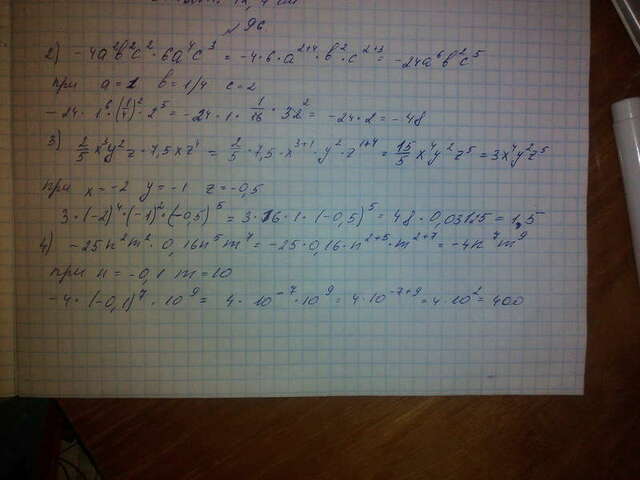 12, 4 см
№ 96
2) -4a²b²c² · 6a⁴c³ = -4·6·a²⁺⁴·b²·c²⁺³ = -24a⁶b²c⁵
при a=1 b=1/4 c=2
-24·1⁶·(1/4)²·2⁵ = -24·1·1/16·32² = -24·2 = -48
3) 2/5 x³y²z · 7,5xz⁴ = 2/5·7,5·x³⁺¹·y²·z¹⁺⁴ = 15/5 x⁴y²z⁵ = 3x⁴y²z⁵
при x=-2 y=-1 z=-0,5
3·(-2)⁴·(-1)²·(-0,5)⁵ = 3·16·1·(-0,5)⁵ = 48·0,03125 = 1,5
4) -25n²m²·0,16n⁵m⁷ = -25·0,16·n²⁺⁵·m²⁺⁷ = -4n⁷m⁹
при n=-0,1 m=10
-4·(-0,1)⁷·10⁹ = 4·10⁻⁷·10⁹ = 4·10⁻⁷⁺⁹ = 4·10² = 400